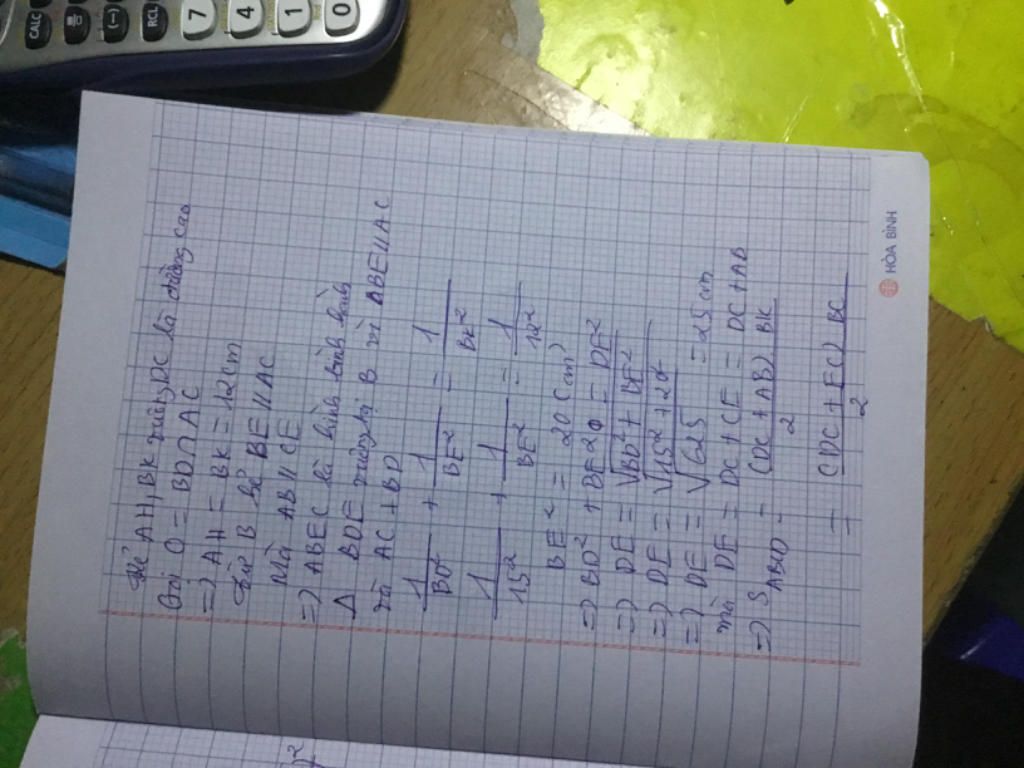 Kẻ AH, BK vuông DC là đường cao
Gọi O = BD ∩ AC
=> AH = BK = 12cm
Từ B kẻ BE // AC
Mà AB // CE
=> ABEC là hình bình hành
Δ BDE vuông tại B vì ABE // AC
và AC ⊥ BD
1/BD² + 1/BE² = 1/BK²
1/15² + 1/BE² = 1/12²
BE² = 20 (cm)
=> BD² + BE² = DE²
=> DE = √BD² + BE²
=> DE = √15² + 20²
=> DE = √625 = 25cm
mà DE = DC + CE = DC + AB
=> S ABCD = (DC + AB) BK / 2
= (DC + EC) BC / 2
HÒA BÌNH
CALC
(-)
RCL
7
4
1
0